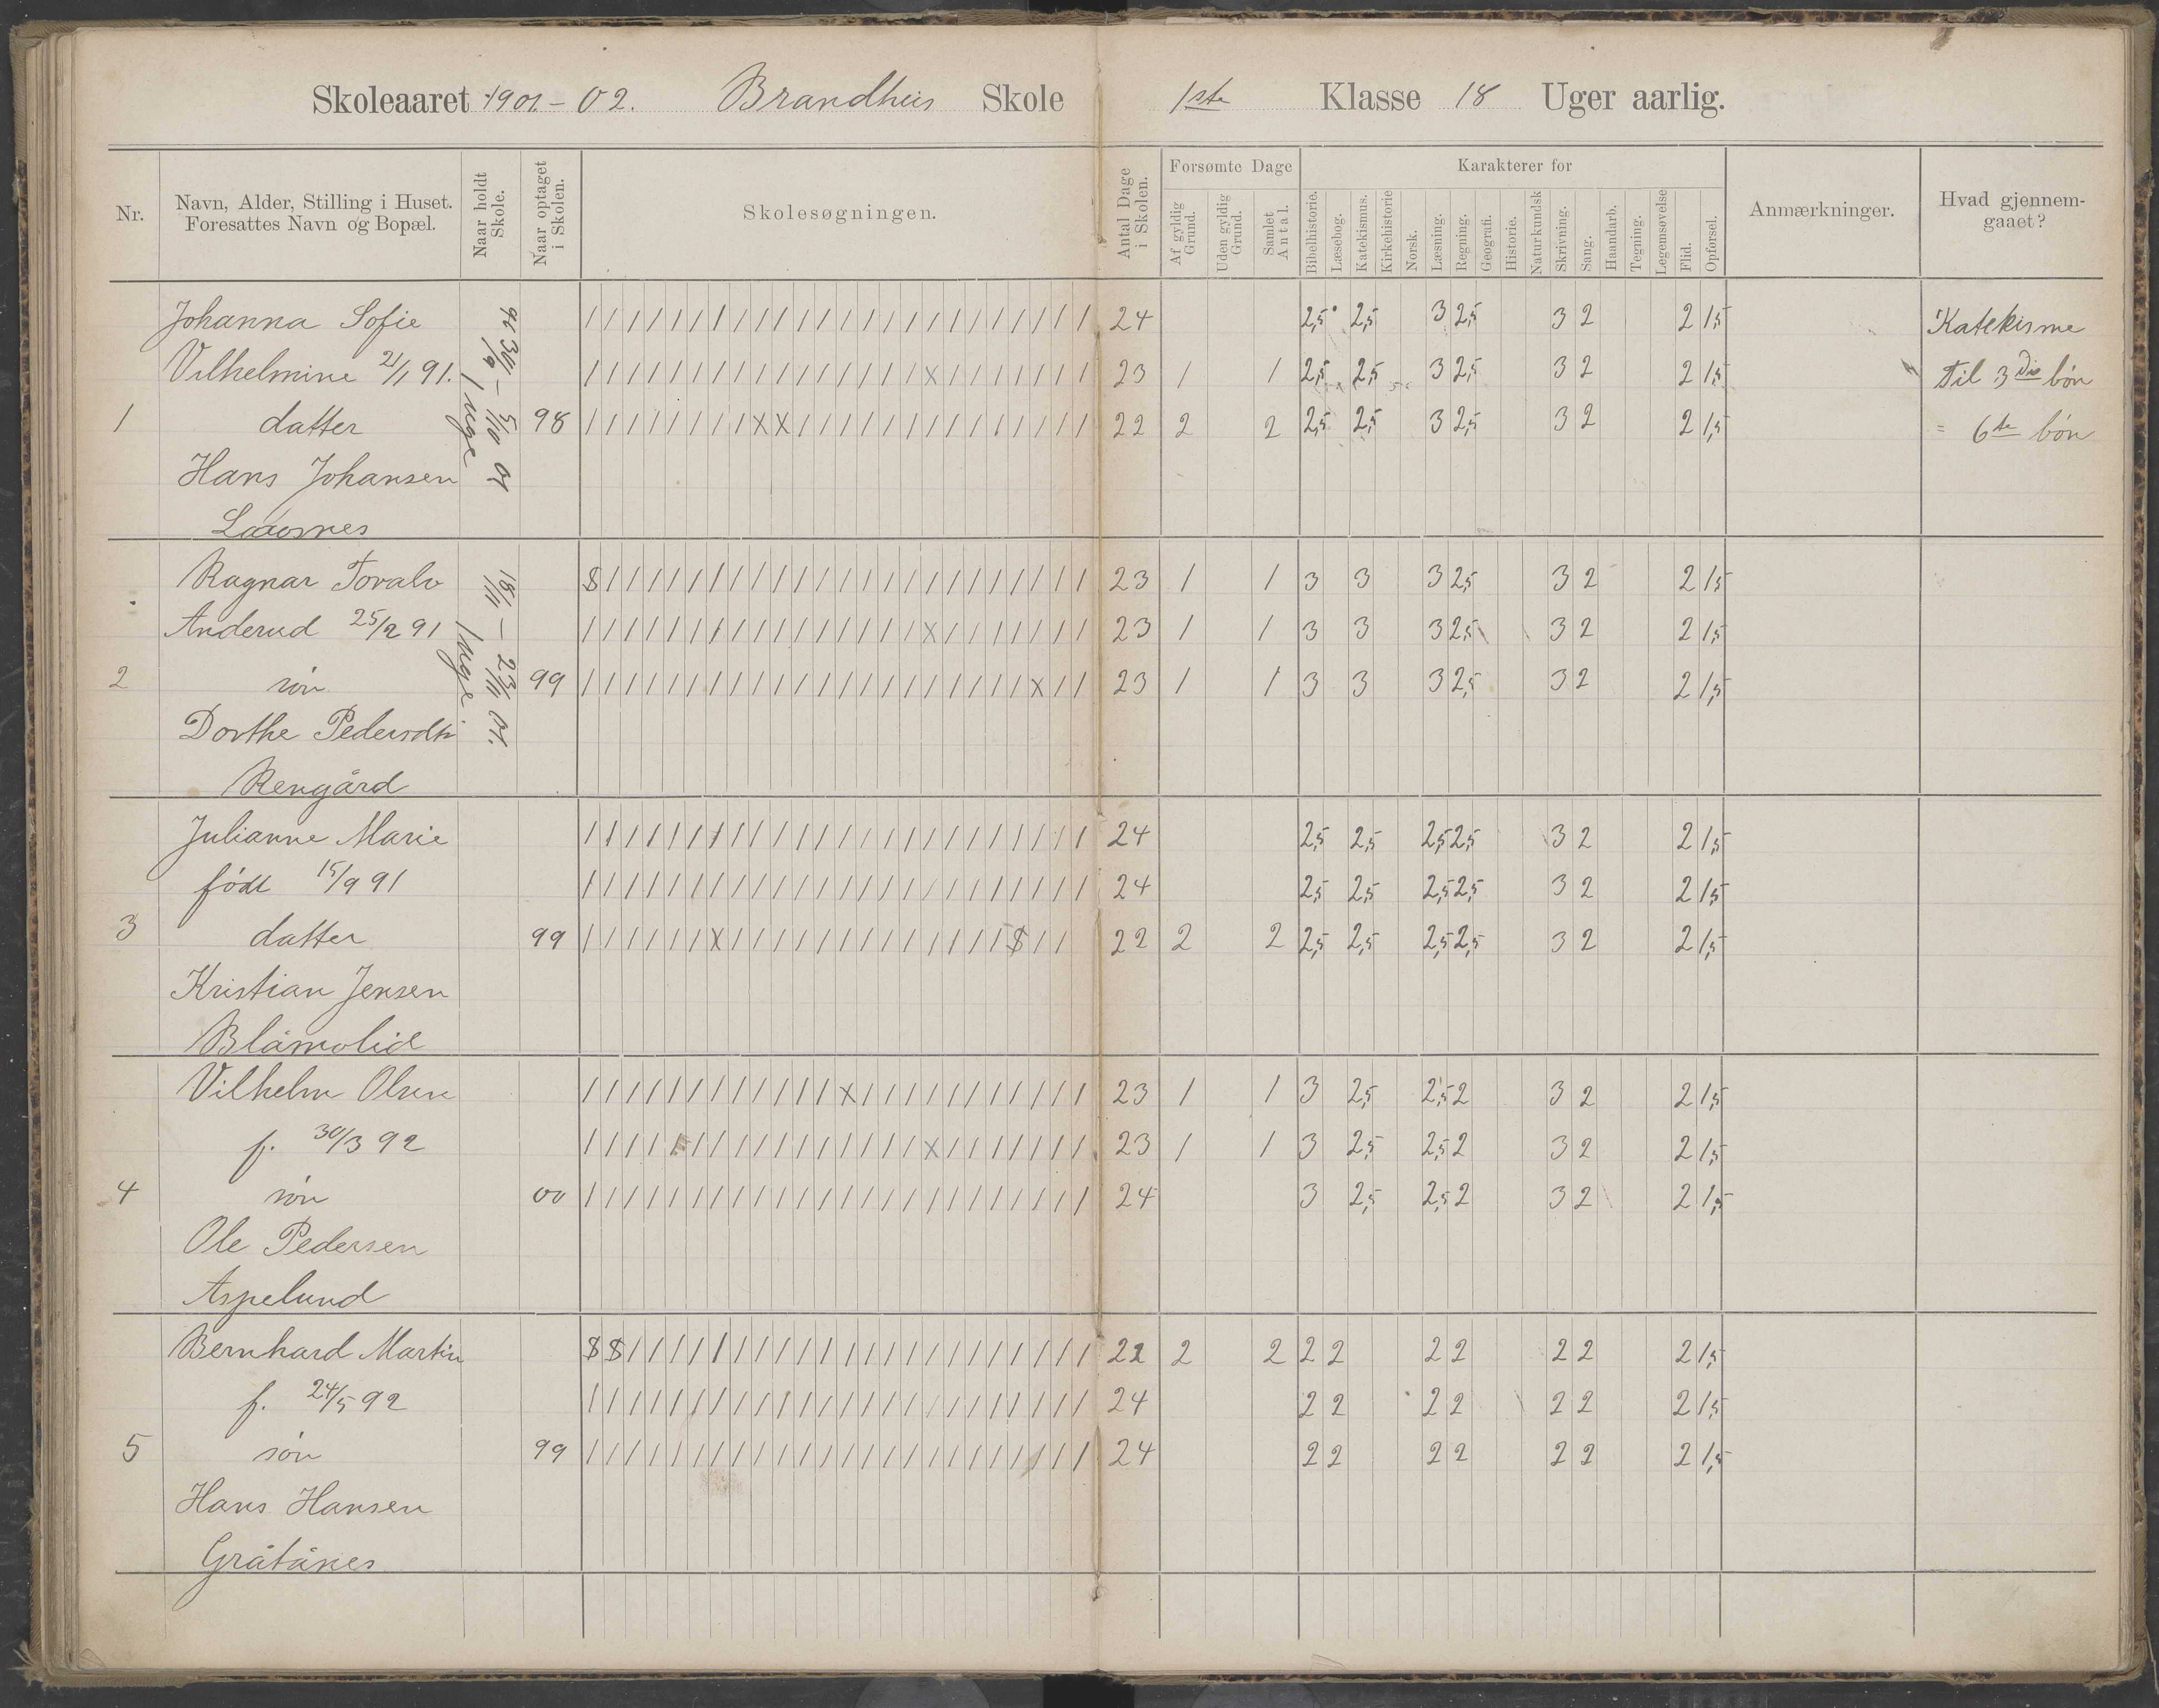 Skoleaaret 1901-02. Brandhus Skole 1ste Klasse 18 Uger aarlig.
Nr.
Navn, Alder, Stilling i Huset.
Foresattes Navn og Bopæl.
Naar holdt Skole.
Naar optaget i Skolen.
Skolesøgningen.
Antal Dage i Skolen.
Forsømte Dage
Af gyldig Grund.
Uden gyldig Grund.
Samlet Antal.
Karakterer for
Bibelhistorie.
Læsebog.
Katekismus.
Kirkehistorie
Norsk.
Læsning.
Regning.
Geografi.
Historie.
Naturkundsk
Skrivning.
Sang.
Haandarb.
Tegning.
Legemsøvelse
Flid.
Opførsel.
Anmærkninger.
Hvad gjennemgaaet?
Johanna Sofie 24 2,5 2,5 3 2,5 3 2 2 1,5 Katekisme
Vilhelmine 21/1 91. 23 1 1 2,5 2,5 3 2,5 3 2 2 1,5 Til 3die bøn
1 datter 98 22 2 2 2,5 2,5 3 2,5 3 2 2 1,5 = 6te bøn
Hans Johansen
30/9 - 5/10 01
1 uge
Ragnar Toralv 23 1 1 3 3 3 2,5 3 2 2 1,5
Anderud 25/2 91 23 1 1 3 3 3 2,5 3 2 2 1,5
2 søn 99 23 1 1 3 3 3 2,5 3 2 2 1,5
Dorthe Pedersdtr
Rengård
18/11 - 23/11 01.
1 uge
Julianne Marie 24 2,5 2,5 2,5 2,5 3 2 2 1,5
født 15/9 91 24 2,5 2,5 2,5 2,5 3 2 2 1,5
3 datter 99 22 2 2 2,5 2,5 2,5 2,5 3 2 2 1,5
Kristian Jensen
Blåmolid
Vilhelm Olsen 23 1 1 3 2,5 2,5 2 3 2 2 1,5
f. 30/3 92 23 1 1 3 2,5 2,5 2 3 2 2 1,5
4 søn 00 24 3 2,5 2,5 2 3 2 2 1,5
Ole Pedersen
Aspelund
Bernhard Martin 22 2 2 2 2 2 2 2 2 2 1,5
f. 24/5 92 24 2 2 2 2 2 2 2 1,5
5 søn 99 24 2 2 2 2 2 2 2 1,5
Hans Hansen
Gråtånes